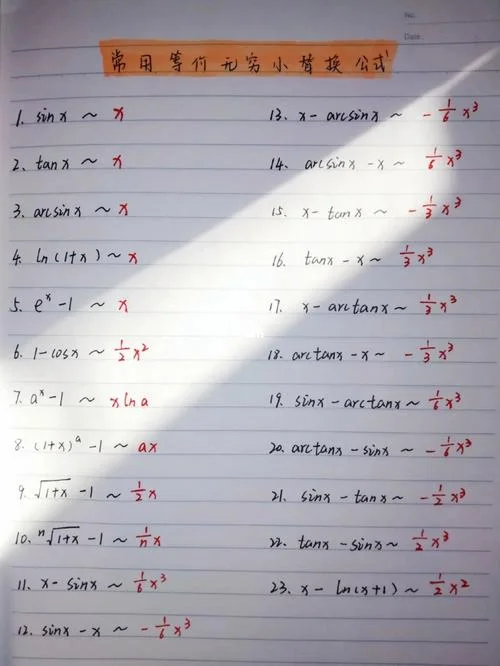 No.
Date
常用等价无穷小替换公式
1. sinx ~ x
2. tanx ~ x
3. arcsinx ~ x
4. ln(1+x) ~ x
5. eˣ-1 ~ x
6. 1-cosx ~ ½x²
7. aˣ-1 ~ xlna
8. (1+x)ᵃ-1 ~ ax
9. √(1+x) -1 ~ ½x
10. ⁿ√(1+x) -1 ~ 1/n x
11. x-sinx ~ 1/6 x³
12. sinx-x ~ -1/6 x³
13. x-arcsinx ~ -1/6 x³
14. arcsinx-x ~ 1/6 x³
15. x-tanx ~ -1/3 x³
16. tanx-x ~ 1/3 x³
17. x-arctanx ~ 1/3 x³
18. arctanx-x ~ -1/3 x³
19. sinx-arctanx ~ 1/6 x³
20. arctanx-sinx ~ -1/6 x³
21. sinx-tanx ~ -1/2 x³
22. tanx-sinx ~ 1/2 x³
23. x-ln(x+1) ~ 1/2 x²